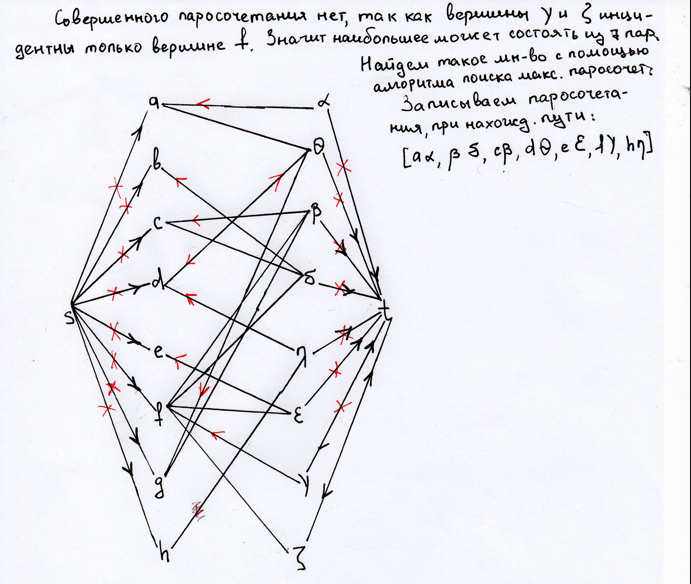 Совершенного паросочетания нет, так как вершины γ и ζ инци-
дентны только вершине f. Значит наибольшее может состоять из 7 пар.
Найдем такое мн-во с помощью
алгоритма поиска макс. паросочет.
Записываем паросочета-
ния, при нахожд. пути:
[aα, β δ, cβ, dθ, eε, fγ, hη]
a
α
θ
b
β
c
δ
d
s
t
e
λ
f
ε
g
γ
h
ζ